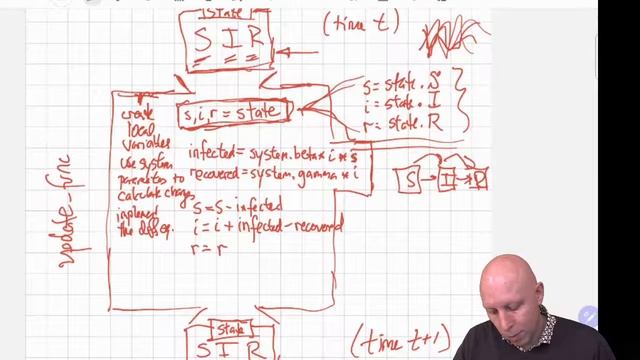 State
S I R
(time t)
s,i,r = state
s = state. S
i = state. I
r = state. R
create
local
variables
use system
parameters to
calculate changes
implement
the diff eq.
infected = system.beta * i * s
recovered = system.gamma * i
S I R
s = s - infected
i = i + infected - recovered
r = r
update_func
State
S I R
(time t+1)